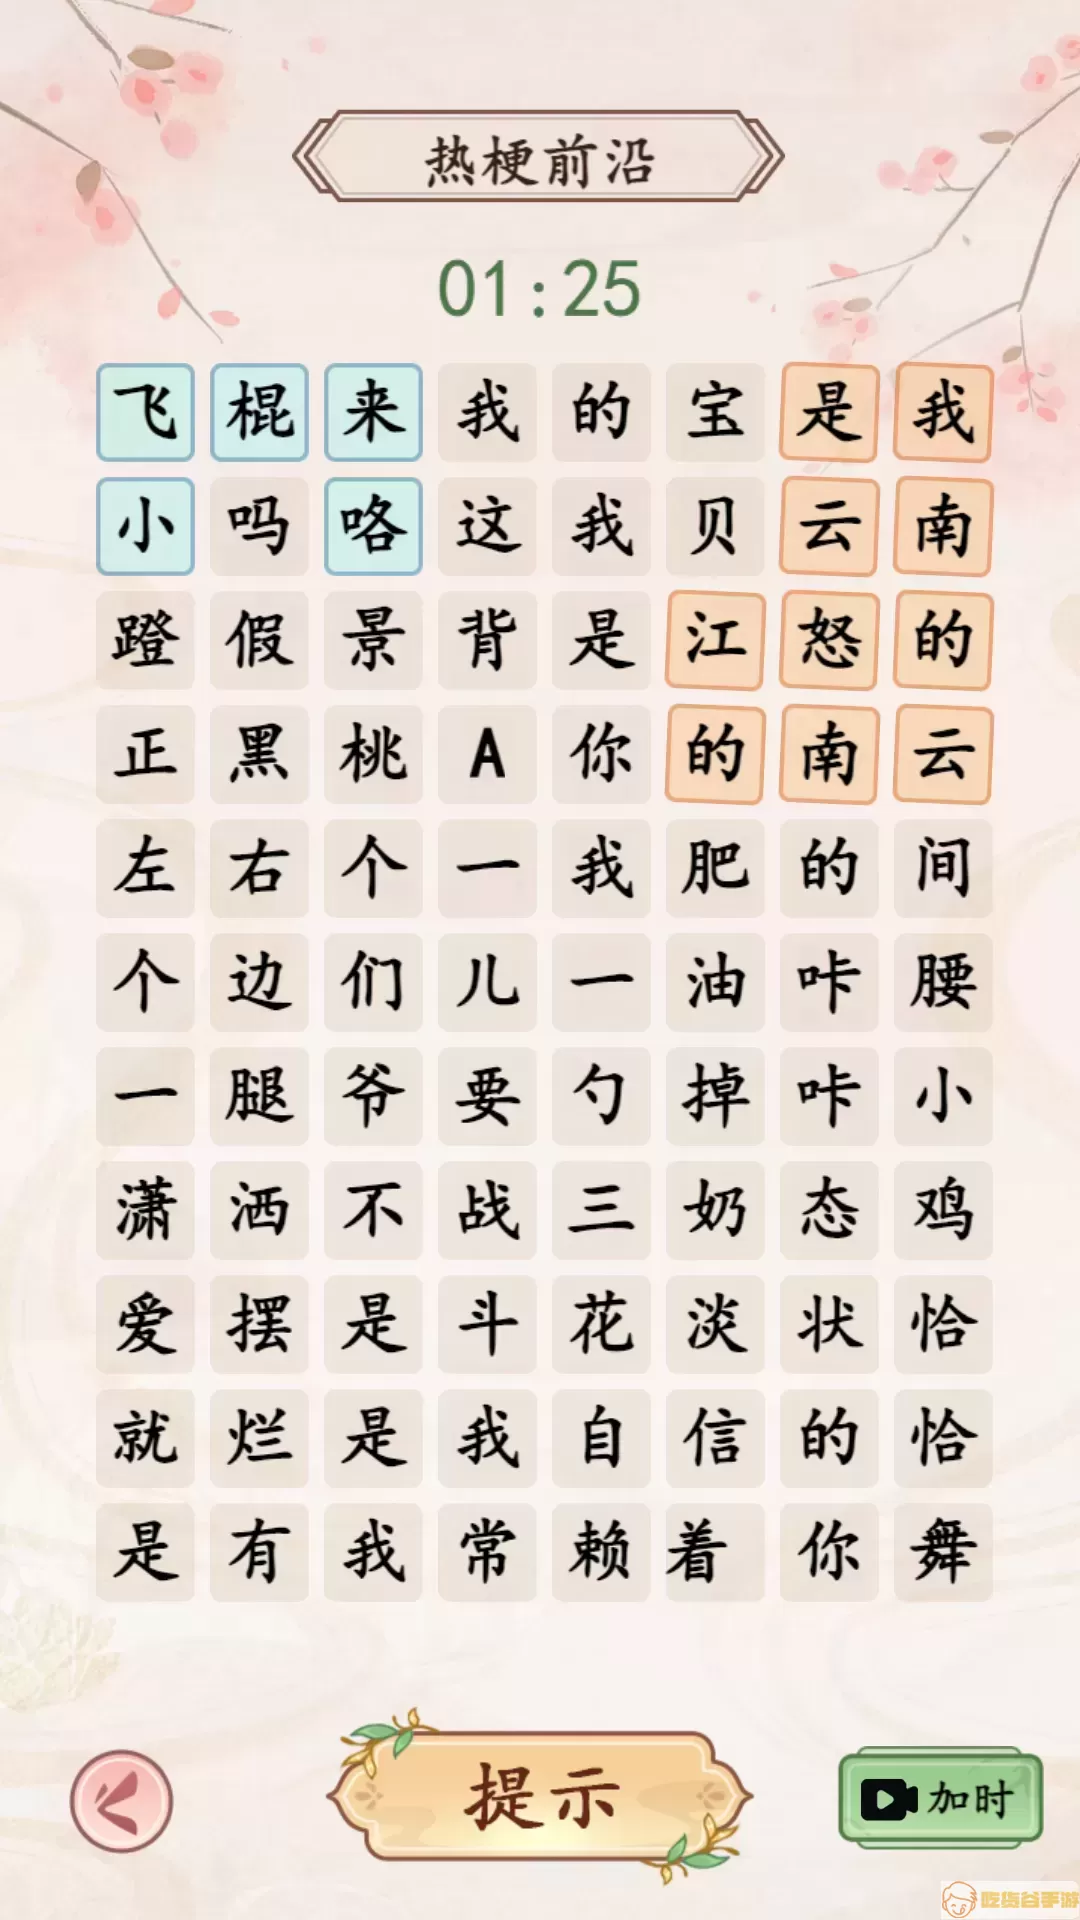 热梗前沿
01:25
飞棍来我的宝是我
小吗咯这我贝云南
蹬假景背是江怒的
正黑桃A你的南云
左右个一我肥的间
个边们儿一油咔腰
一腿爷要勺掉咔小
潇洒不战三奶态鸡
爱摆是斗花淡状恰
就烂是我自信的恰
是有我常赖着你舞
提示
加时
吃货谷手游